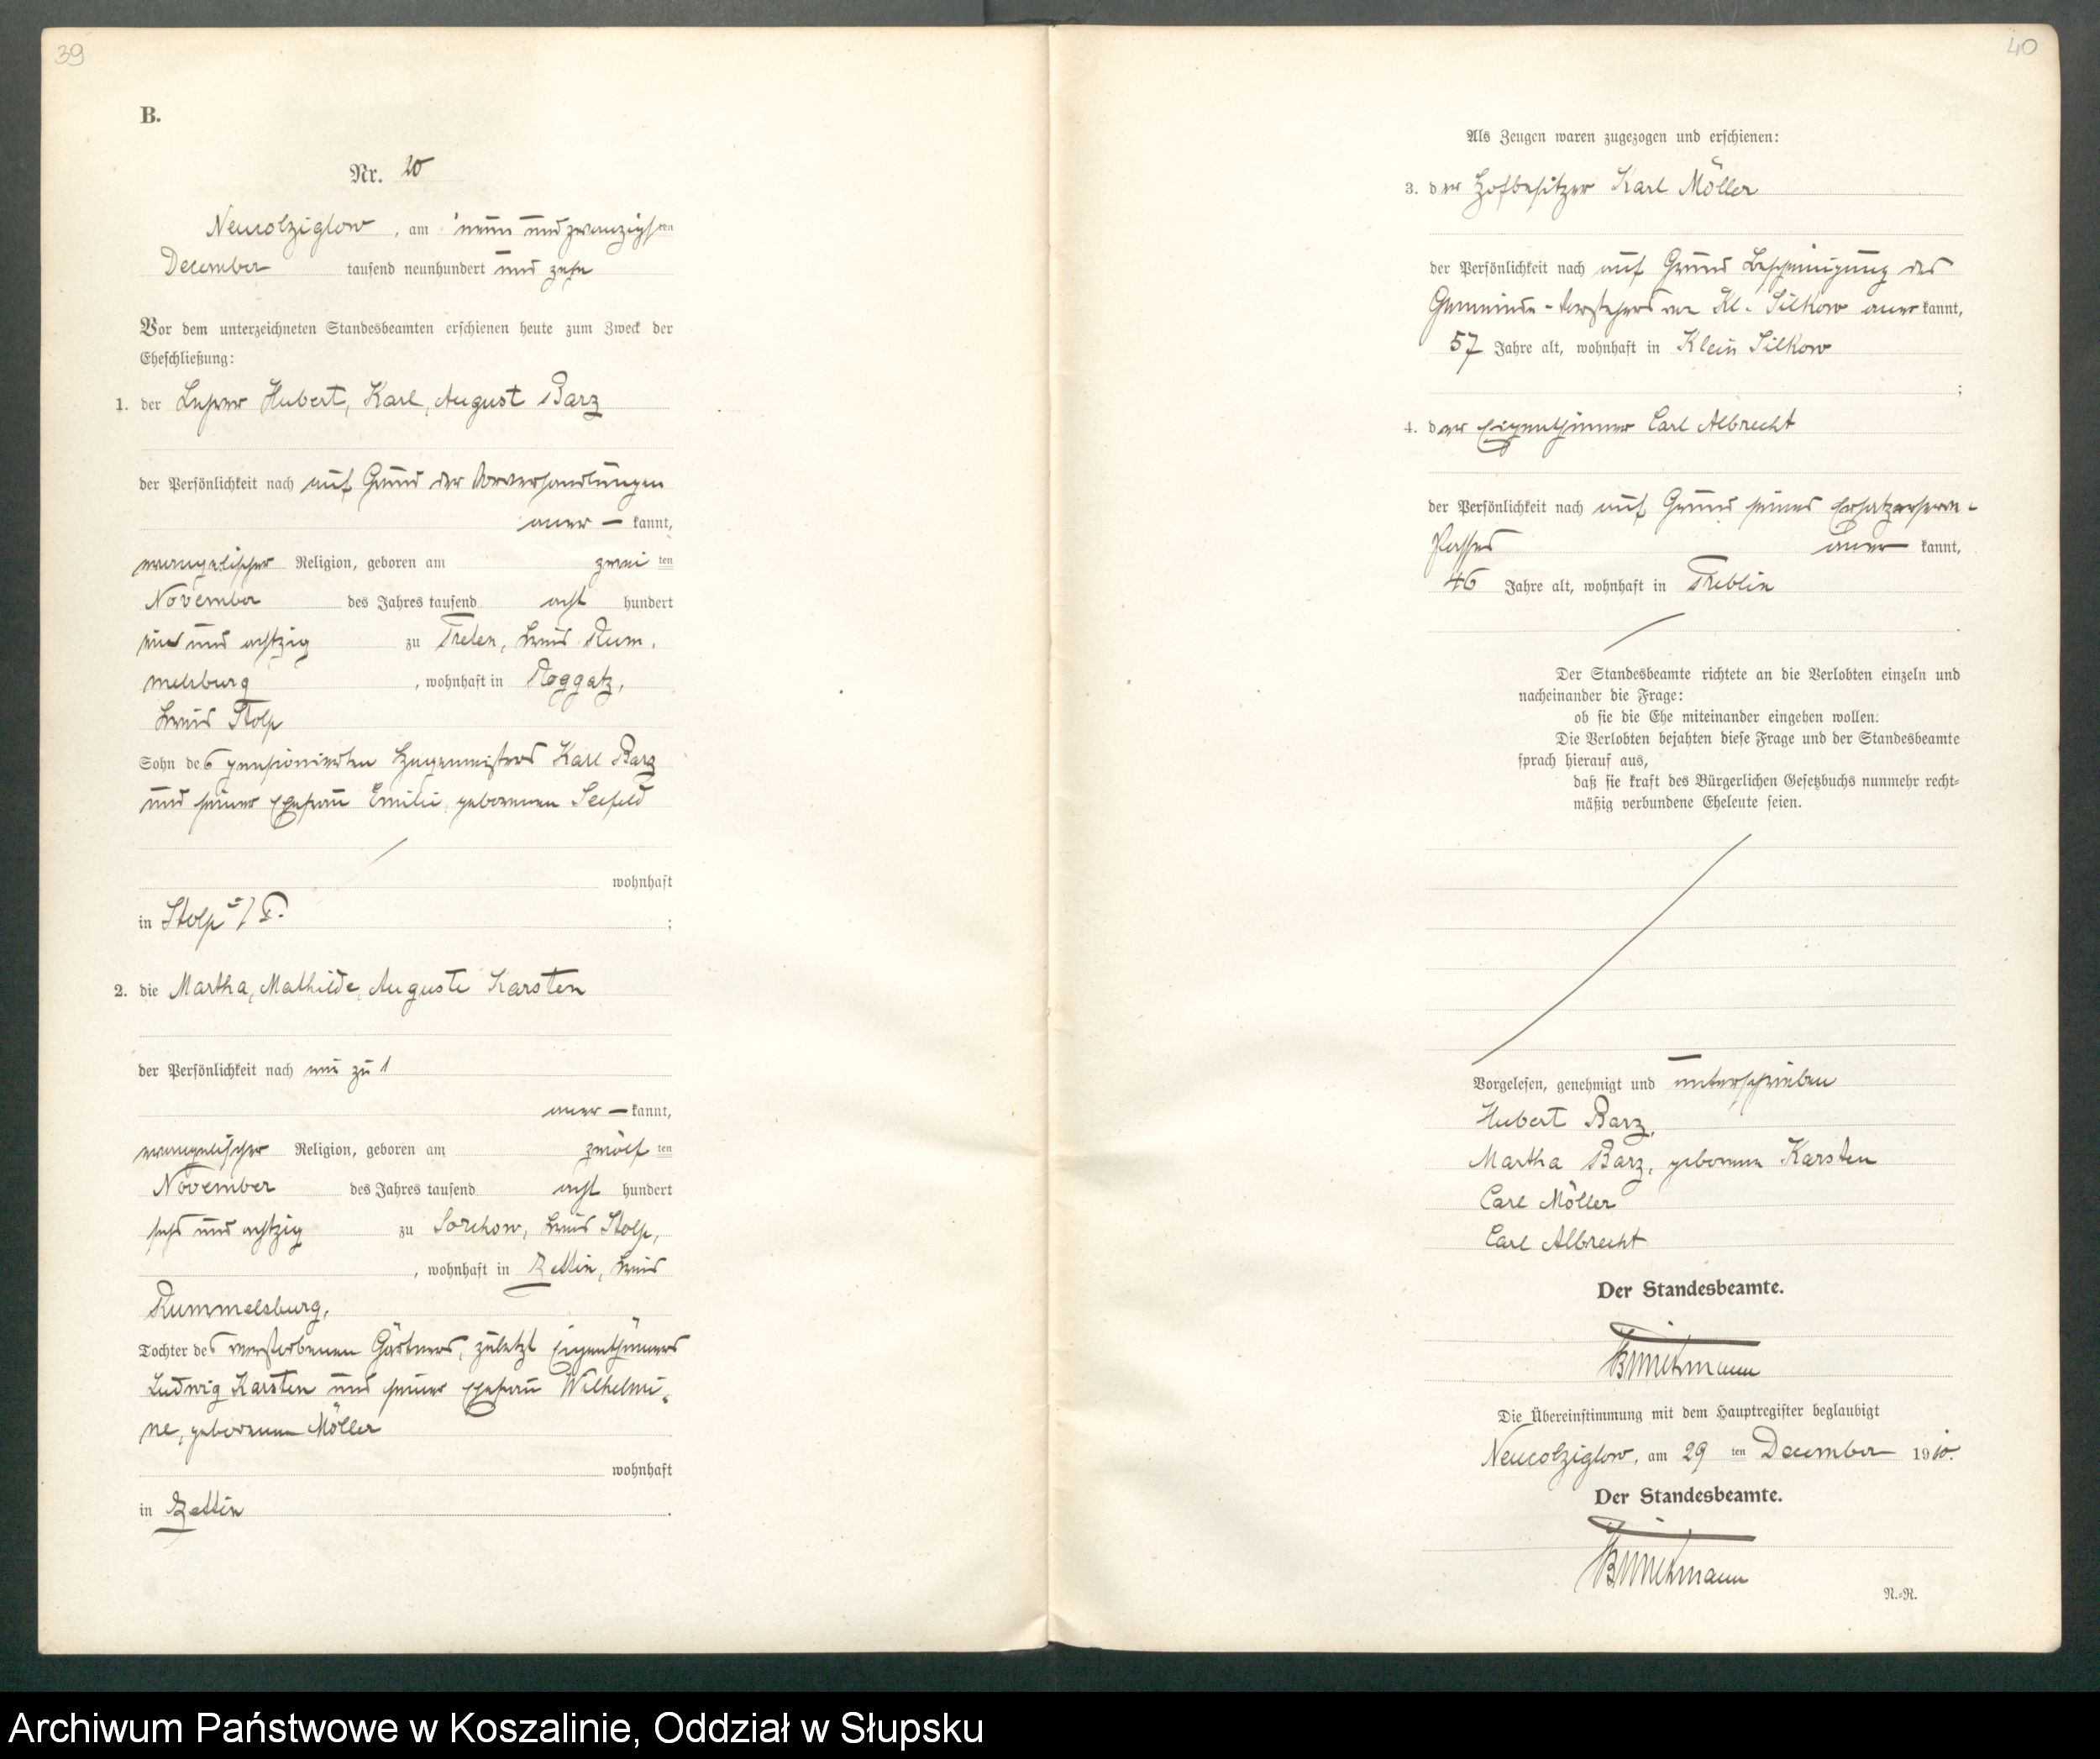 39
B.
Nr. 10
Neucolziglow, am neun und zwanzigsten
December tausend neunhundert und zehn
Vor dem unterzeichneten Standesbeamten erschienen heute zum Zweck der
Eheschließung:
1. der Lehrer Hubert, Karl, August Barz
der Persönlichkeit nach auf Grund der Vorverhandlungen
aner — kannt,
evangelischer Religion, geboren am zwei ten
November des Jahres tausend acht hundert
ein und achtzig zu Treten, Kreis Rum.
melsburg, wohnhaft in Roggatz,
Kreis Stolp
Sohn des pensionierten Hegemeisters Karl Barz
und seiner Ehefrau Emilie, geborenen Seefeld
wohnhaft
in Stolp i/P. ;
2. die Martha, Mathilde, Auguste Karsten
der Persönlichkeit nach wie zu 1
aner — kannt,
evangelischer Religion, geboren am zwölf ten
November des Jahres tausend acht hundert
sechs und achtzig zu Sorchow, Kreis Stolp,
, wohnhaft in Zettin, Kreis
Rummelsburg,
Tochter des verstorbenen Gärtners, zuletzt Eigenthümers
Ludwig Karsten und seiner Ehefrau Wilhelmi-
ne, geborenen Möller
wohnhaft
in Zettin .
40
Als Zeugen waren zugezogen und erschienen:
3. der Hofbesitzer Karl Möller
der Persönlichkeit nach auf Grund Bescheinigung des
Gemeinde-Vorstehers von Kl. Silkow anerkannt,
57 Jahre alt, wohnhaft in Klein Silkow
;
4. der Eigenthümer Carl Albrecht
der Persönlichkeit nach auf Grund seines Ersatzreserve-
Passes aner kannt,
46 Jahre alt, wohnhaft in Treblin
.
Der Standesbeamte richtete an die Verlobten einzeln und
nacheinander die Frage:
ob sie die Ehe miteinander eingehen wollen.
Die Verlobten bejahten diese Frage und der Standesbeamte
sprach hierauf aus,
daß sie kraft des Bürgerlichen Gesetzbuchs nunmehr recht-
mäßig verbundene Eheleute seien.
Vorgelesen, genehmigt und unterschrieben
Hubert Barz,
Martha Barz, geborene Karsten
Carl Möller
Carl Albrecht
Der Standesbeamte.
Die Übereinstimmung mit dem Hauptregister beglaubigt
Neucolziglow, am 29 ten December 1910.
Der Standesbeamte.
N.-R.
Archiwum Państwowe w Koszalinie, Oddział w Słupsku